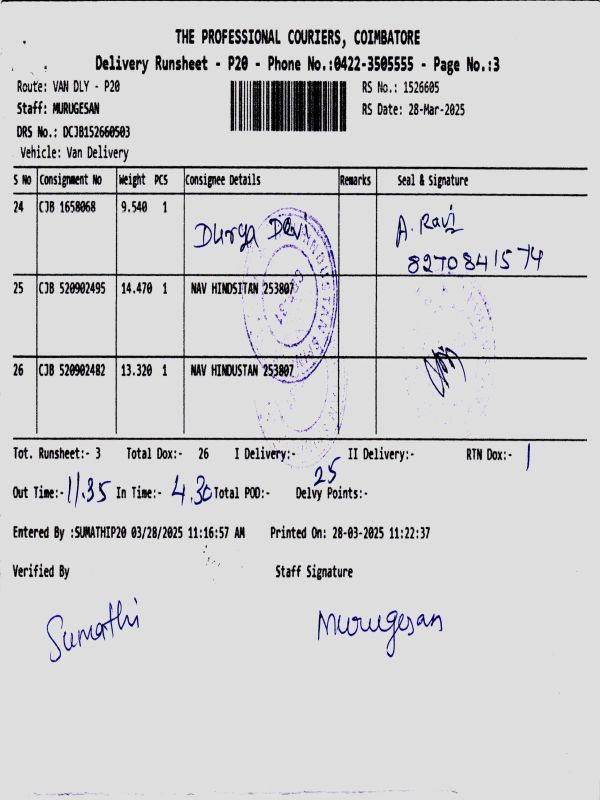 THE PROFESSIONAL COURIERS, COIMBATORE
Delivery Runsheet - P20 - Phone No.:0422-3505555 - Page No.:3
Route: VAN DLY - P20 RS No.: 1526605
Staff: MURUGESAN RS Date: 28-Mar-2025
DRS No.: DCJB152660503
Vehicle: Van Delivery
S No Consignment No Weight PCS Consignee Details Remarks Seal & Signature
24 CJB 1658068 9.540 1 Durga Devi A. Ravi
8270841574
25 CJB 520902495 14.470 1 NAV HINDSITAN 253807
26 CJB 520902482 13.320 1 NAV HINDUSTAN 253807
Tot. Runsheet:- 3 Total Dox:- 26 I Delivery:- 25 II Delivery:- RTN Dox:- 1
Out Time:- 11.35 In Time:- 4.30 Total POD:- Delvy Points:-
Entered By :SUMATHIP20 03/28/2025 11:16:57 AM Printed On: 28-03-2025 11:22:37
Verified By Staff Signature
Sumathi Murugesan